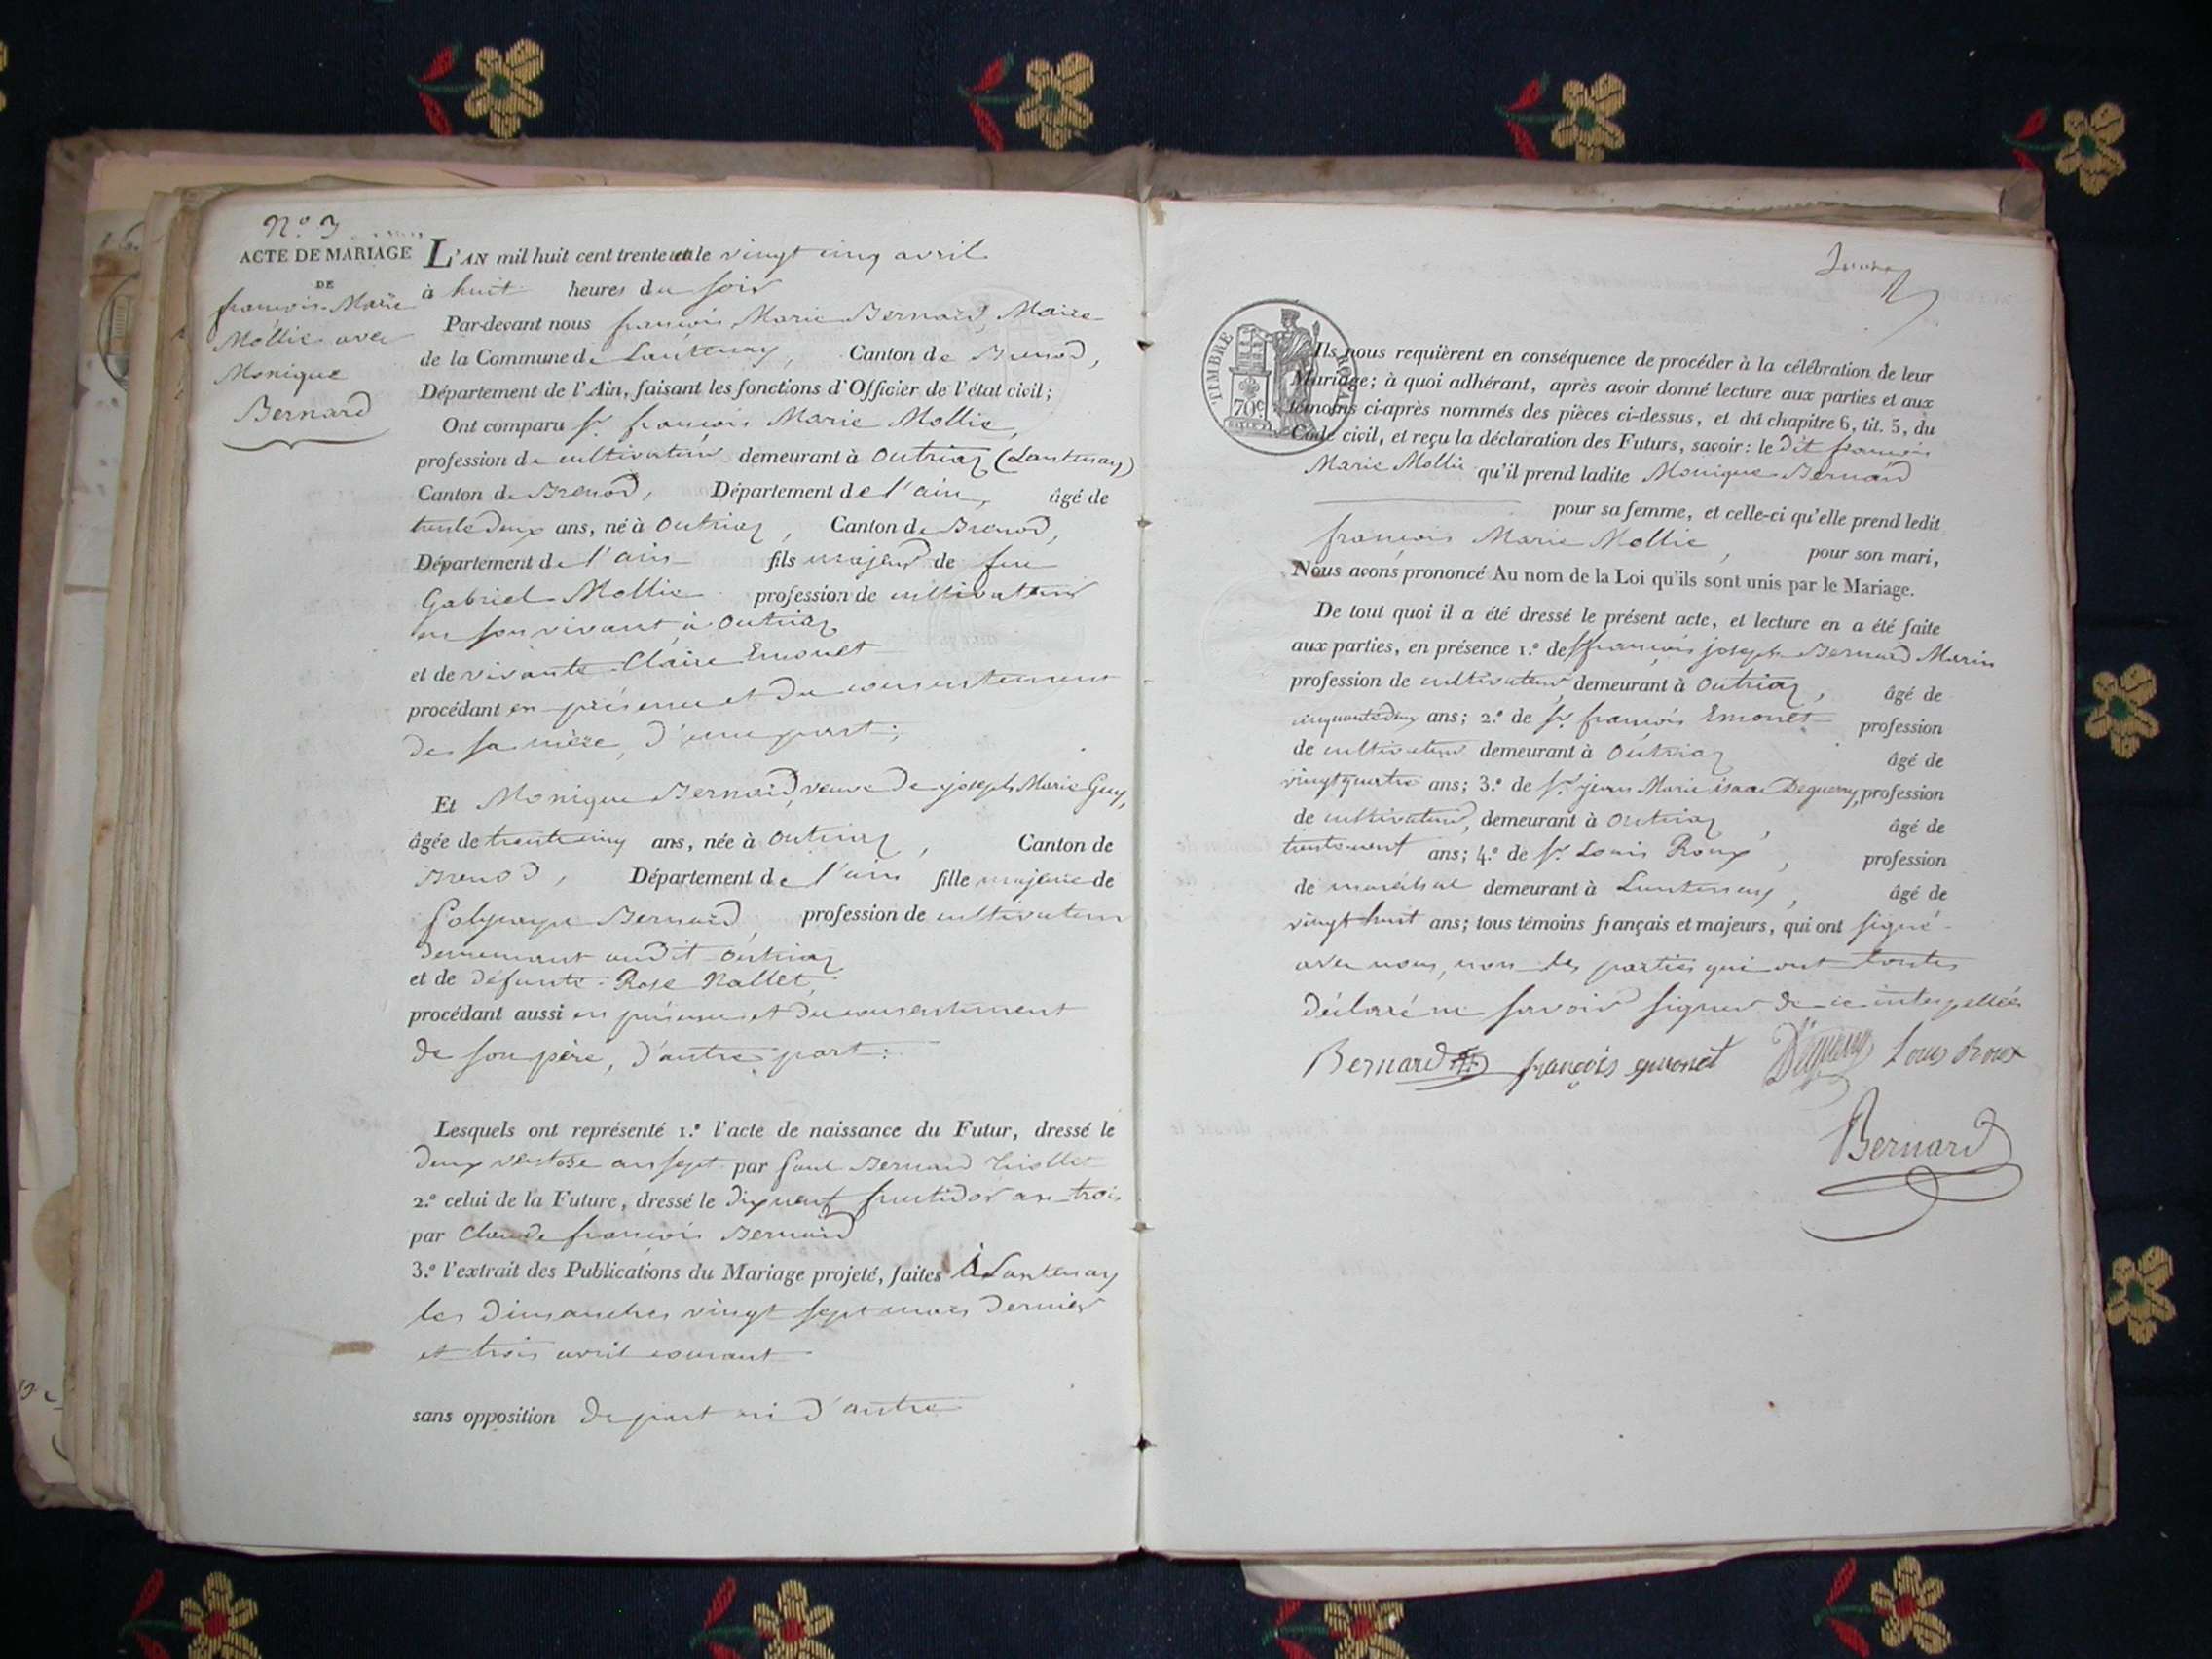 N.º 3
ACTE DE MARIAGE
DE
françois Marie
Mollie avec
Monique
Bernard
L'AN mil huit cent trente et un le vingt cinq avril
à huit heures du soir
Par-devant nous françois Marie Bernard, Maire
de la Commune de Lantenay, Canton de Brenod,
Département de l'Ain, faisant les fonctions d'Officier de l'état civil;
Ont comparu Sr. françois Marie Mollie,
profession de cultivateur demeurant à Outriaz (Lantenay)
Canton de Brenod, Département de l'ain, âgé de
trente deux ans, né à Outriaz, Canton de Brenod,
Département de l'ain fils majeur de feu
Gabriel Mollie profession de cultivateur
en son vivant à Outriaz
et de vivante Claire Emonet
procédant en présence et du consentement
de sa mère, d'une part;
Et Monique Bernard, veuve de joseph Marie Guy,
âgée de trente cinq ans, née à Outriaz, Canton de
Brenod, Département de l'ain fille majeure de
Polycarpe Bernard, profession de cultivateur
demeurant audit Outriaz
et de défunte Rose Nallet,
procédant aussi en présence et du consentement
de son père, d'autre part:
Lesquels ont représenté 1.º l'acte de naissance du Futur, dressé le
deux ventose an sept par Paul Bernard
2.º celui de la Future, dressé le dix neuf fructidor an trois
par Claude françois Bernard
3.º l'extrait des Publications du Mariage projeté, faites à Lantenay
les dimanches vingt sept mars dernier
et trois avril courant
sans opposition de part ni d'autre
TIMBRE ROYAL
70 c.
Ils nous requièrent en conséquence de procéder à la célébration de leur
Mariage; à quoi adhérant, après avoir donné lecture aux parties et aux
témoins ci-après nommés des pièces ci-dessus, et du chapitre 6, tit. 5, du
Code civil, et reçu la déclaration des Futurs, savoir: le dit françois
Marie Mollie qu'il prend ladite Monique Bernard
pour sa femme, et celle-ci qu'elle prend ledit
françois Marie Mollie, pour son mari,
Nous avons prononcé Au nom de la Loi qu'ils sont unis par le Mariage.
De tout quoi il a été dressé le présent acte, et lecture en a été faite
aux parties, en présence 1.º de Sr. françois joseph Bernard Marin
profession de cultivateur demeurant à Outriaz, âgé de
cinquante deux ans; 2.º de Sr. françois Emonet profession
de cultivateur demeurant à Outriaz âgé de
vingt quatre ans; 3.º de Sr. jean Marie isaac Deguerry, profession
de cultivateur, demeurant à Outriaz, âgé de
trente neuf ans; 4.º de Sr. Louis Roux, profession
de maréchal demeurant à Lantenay, âgé de
vingt huit ans; tous témoins français et majeurs, qui ont signé
avec nous, non les parties qui ont toutes
déclaré ne savoir signer de ce interpellées
Bernard françois emonet Louis Roux
Bernard